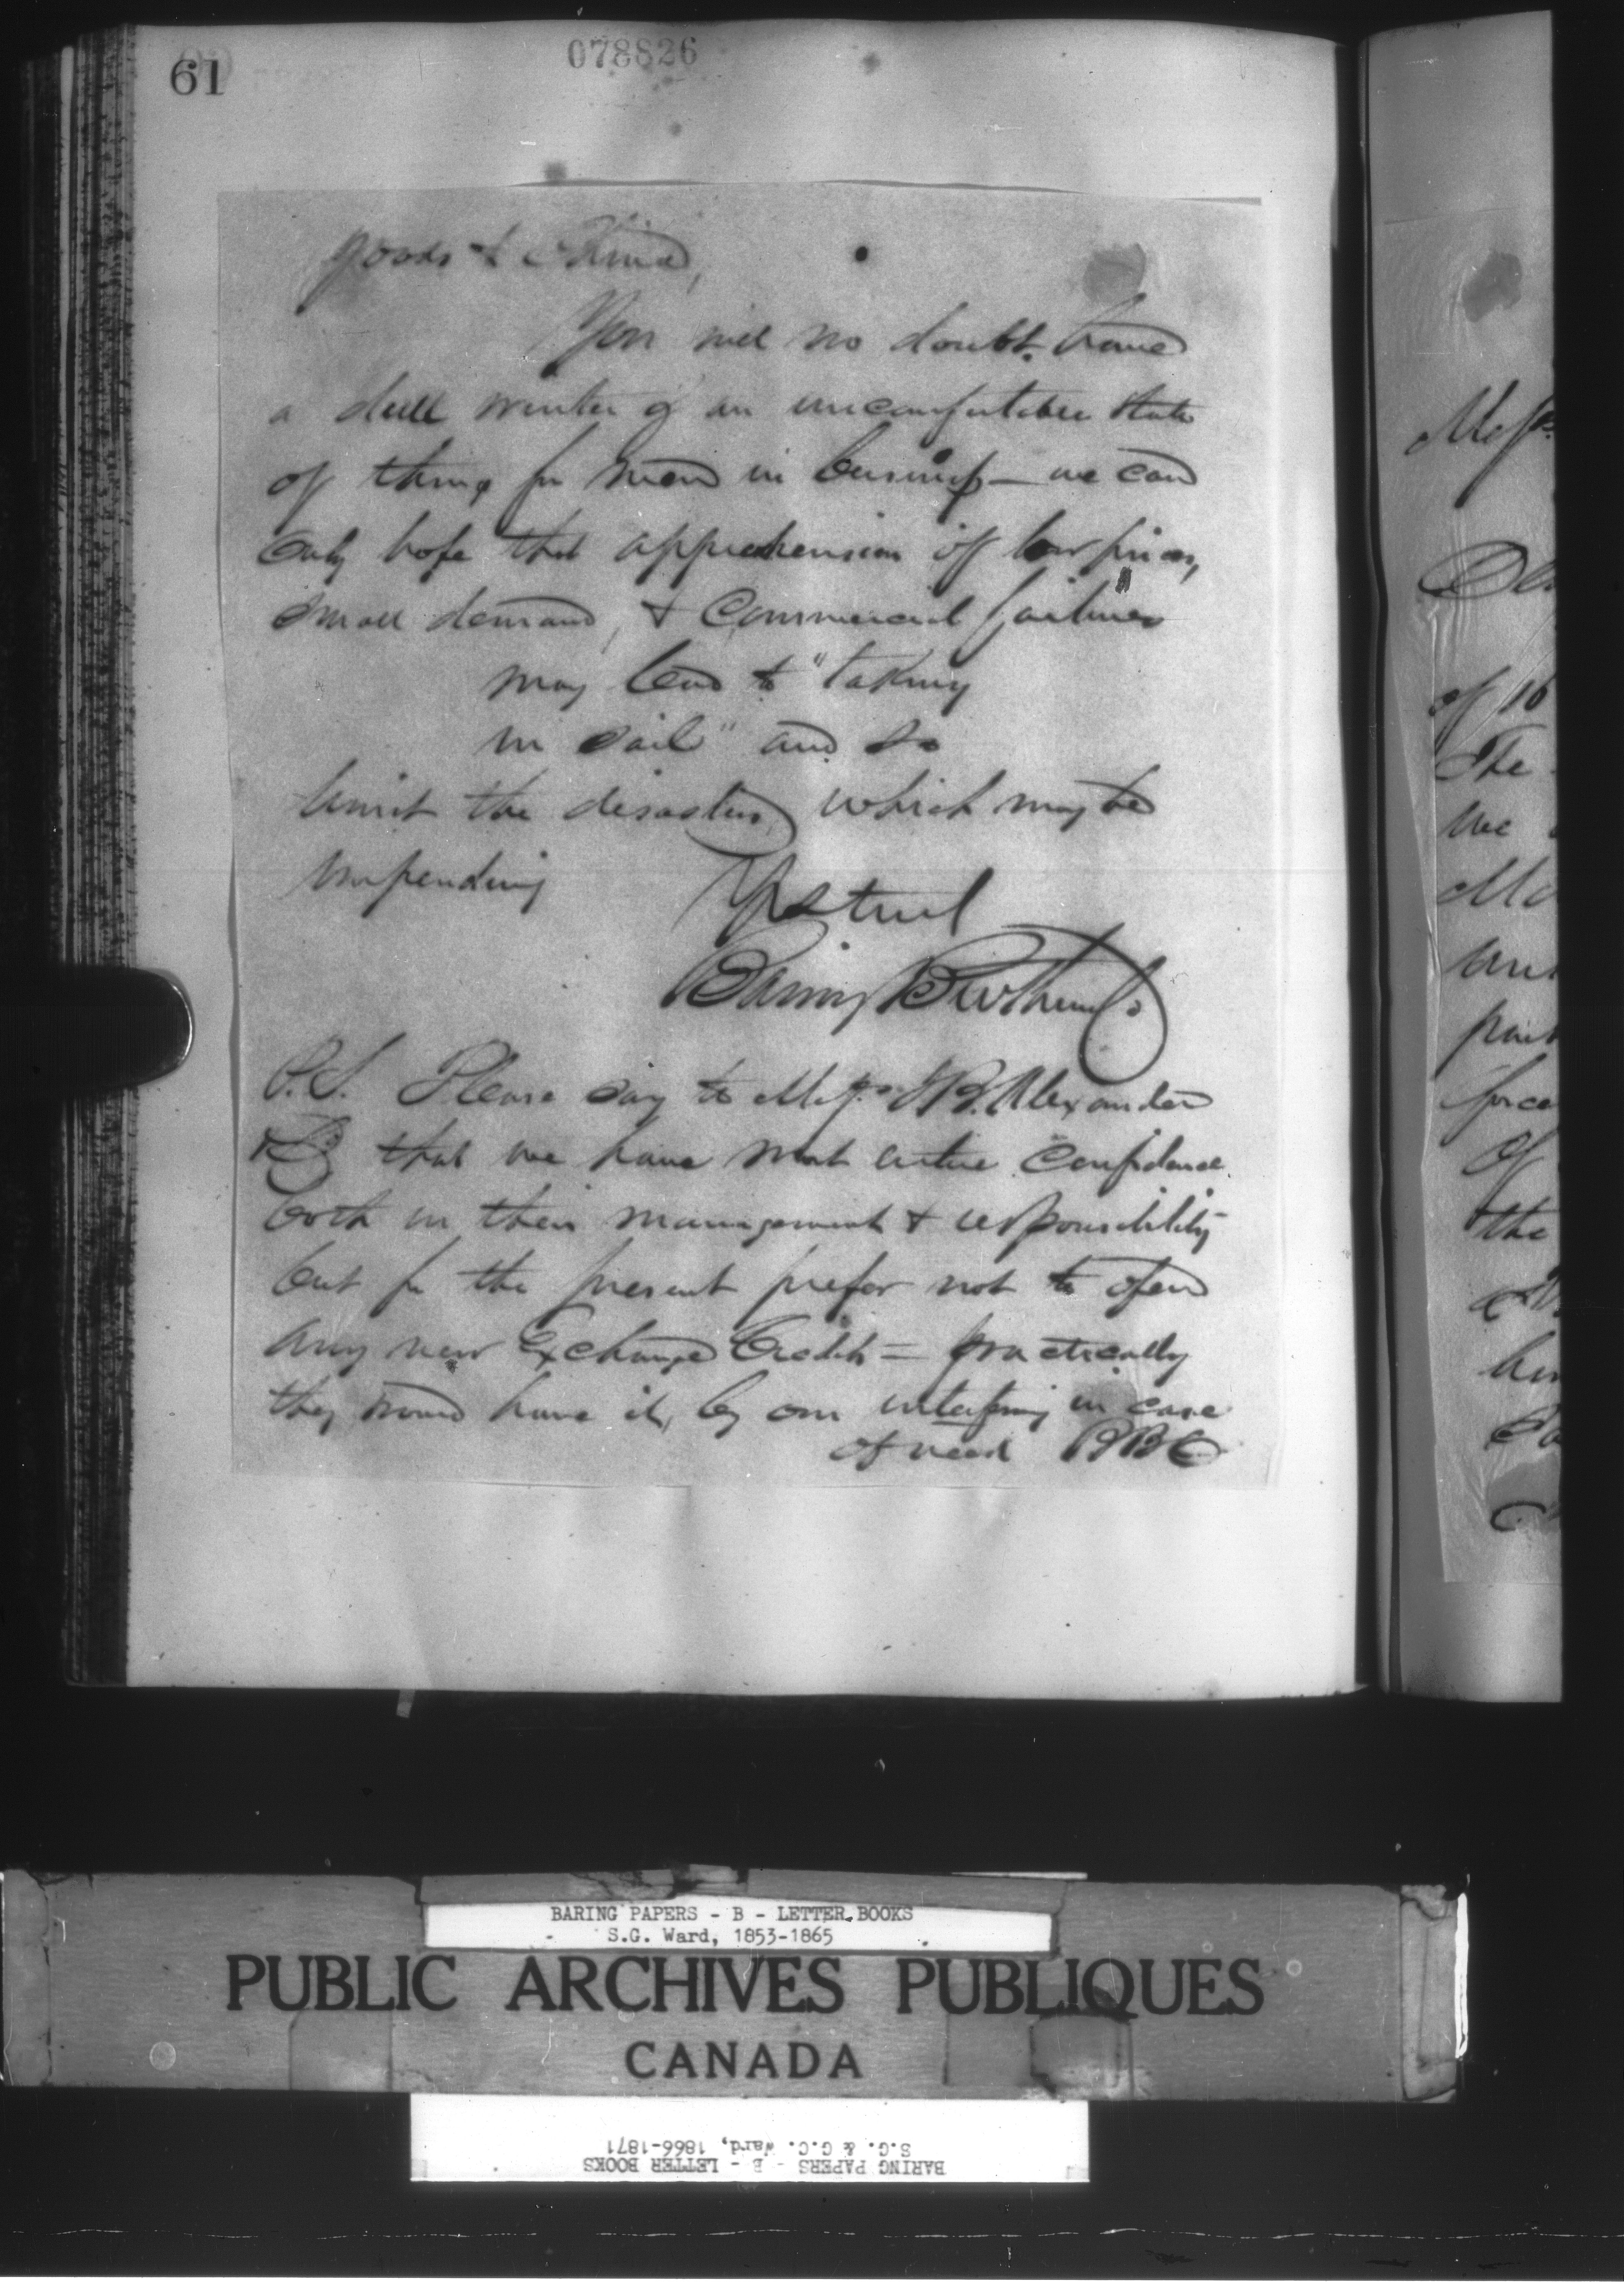 61
078826
goods & China,
You will no doubt have
a dull winter & an uncomfortable state
of things for men in business — we can
only hope that apprehension of low prices,
small demand, & Commercial failures
may lead to "taking
in sail" and so
limit the disasters which may be
impending
Yrs truly
Baring Brothers Co
P.S. Please say to Messrs JB. Alexander
& Co that we have most entire confidence
both in their management & responsibility
but for the present prefer not to open
any new Exchange Credits = practically
they would have it, by our interfering in case
of need BBC
Mess
of 16
The
we
the
BARING PAPERS - B - LETTER BOOKS
S.G. Ward, 1853-1865
PUBLIC ARCHIVES PUBLIQUES
CANADA
BARING PAPERS - B - LETTER BOOKS
S.G. & G.C. Ward, 1866-1871